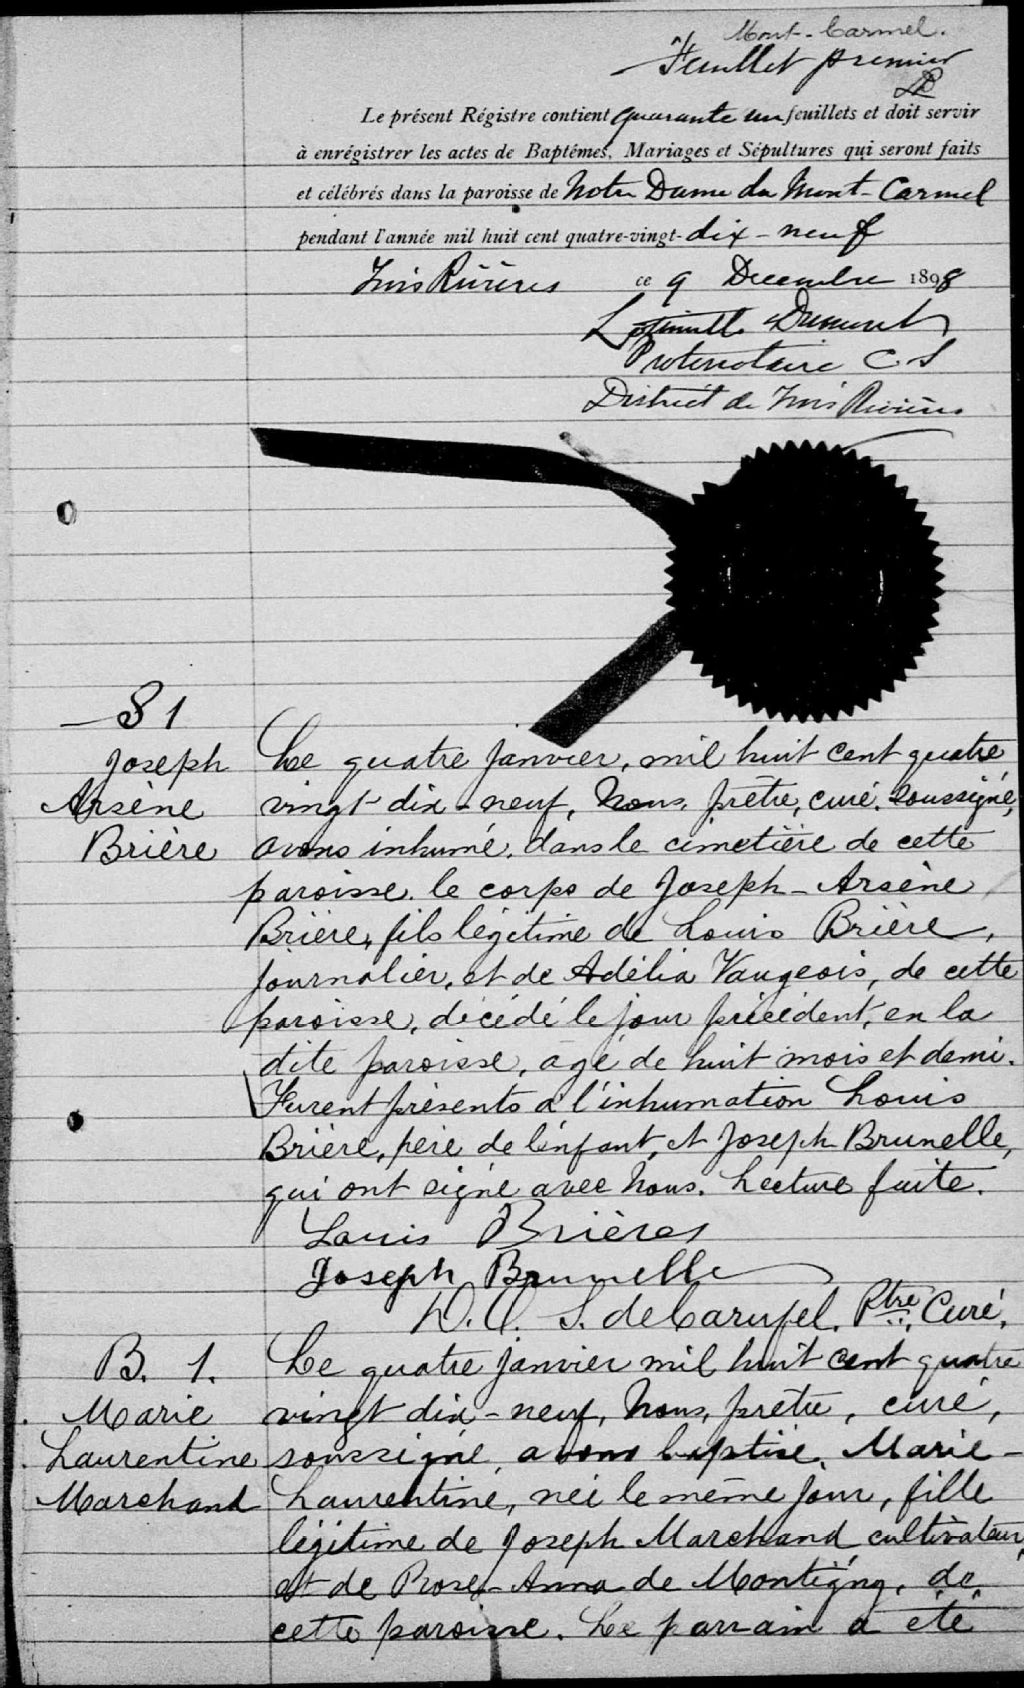 Mont-Carmel.
Feuillet premier
Le présent Régistre contient quarante un feuillets et doit servir
à enrégistrer les actes de Baptêmes, Mariages et Sépultures qui seront faits
et célébrés dans la paroisse de Notre Dame du Mont-Carmel
pendant l'année mil huit cent quatre-vingt-dix-neuf
Trois Rivières ce 9 Decembre 1898
Protonotaire C S
District de Trois Rivières
S 1
Joseph
Arsène
Brière
Le quatre janvier, mil huit cent quatre
vingt-dix-neuf, Nous, prêtre, curé, soussigné,
avons inhumé, dans le cimetière de cette
paroisse le corps de Joseph-Arsène
Brière, fils légitime de Louis Brière,
journalier, et de Adélia Vaugeois, de cette
paroisse, décédé le jour précédent, en la
dite paroisse, âgé de huit mois et demi.
Furent présents à l'inhumation Louis
Brière, père de l'enfant, et Joseph Brunelle,
qui ont signé avec Nous. Lecture faite.
Louis Brières
Joseph Brunelle
D. O. S. de Carufel, Ptre, Curé.
B. 1.
Marie
Laurentine
Marchand
Le quatre janvier mil huit cent quatre
vingt dix-neuf, Nous, prêtre, curé,
soussigné, avons baptisé, Marie-
Laurentine, née le même jour, fille
légitime de Joseph Marchand, cultivateur,
et de Rose-Anna de Montigny, de
cette paroisse. Le parrain a été